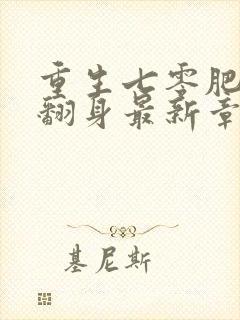 重生七零肥
翻身最新章
基尼斯